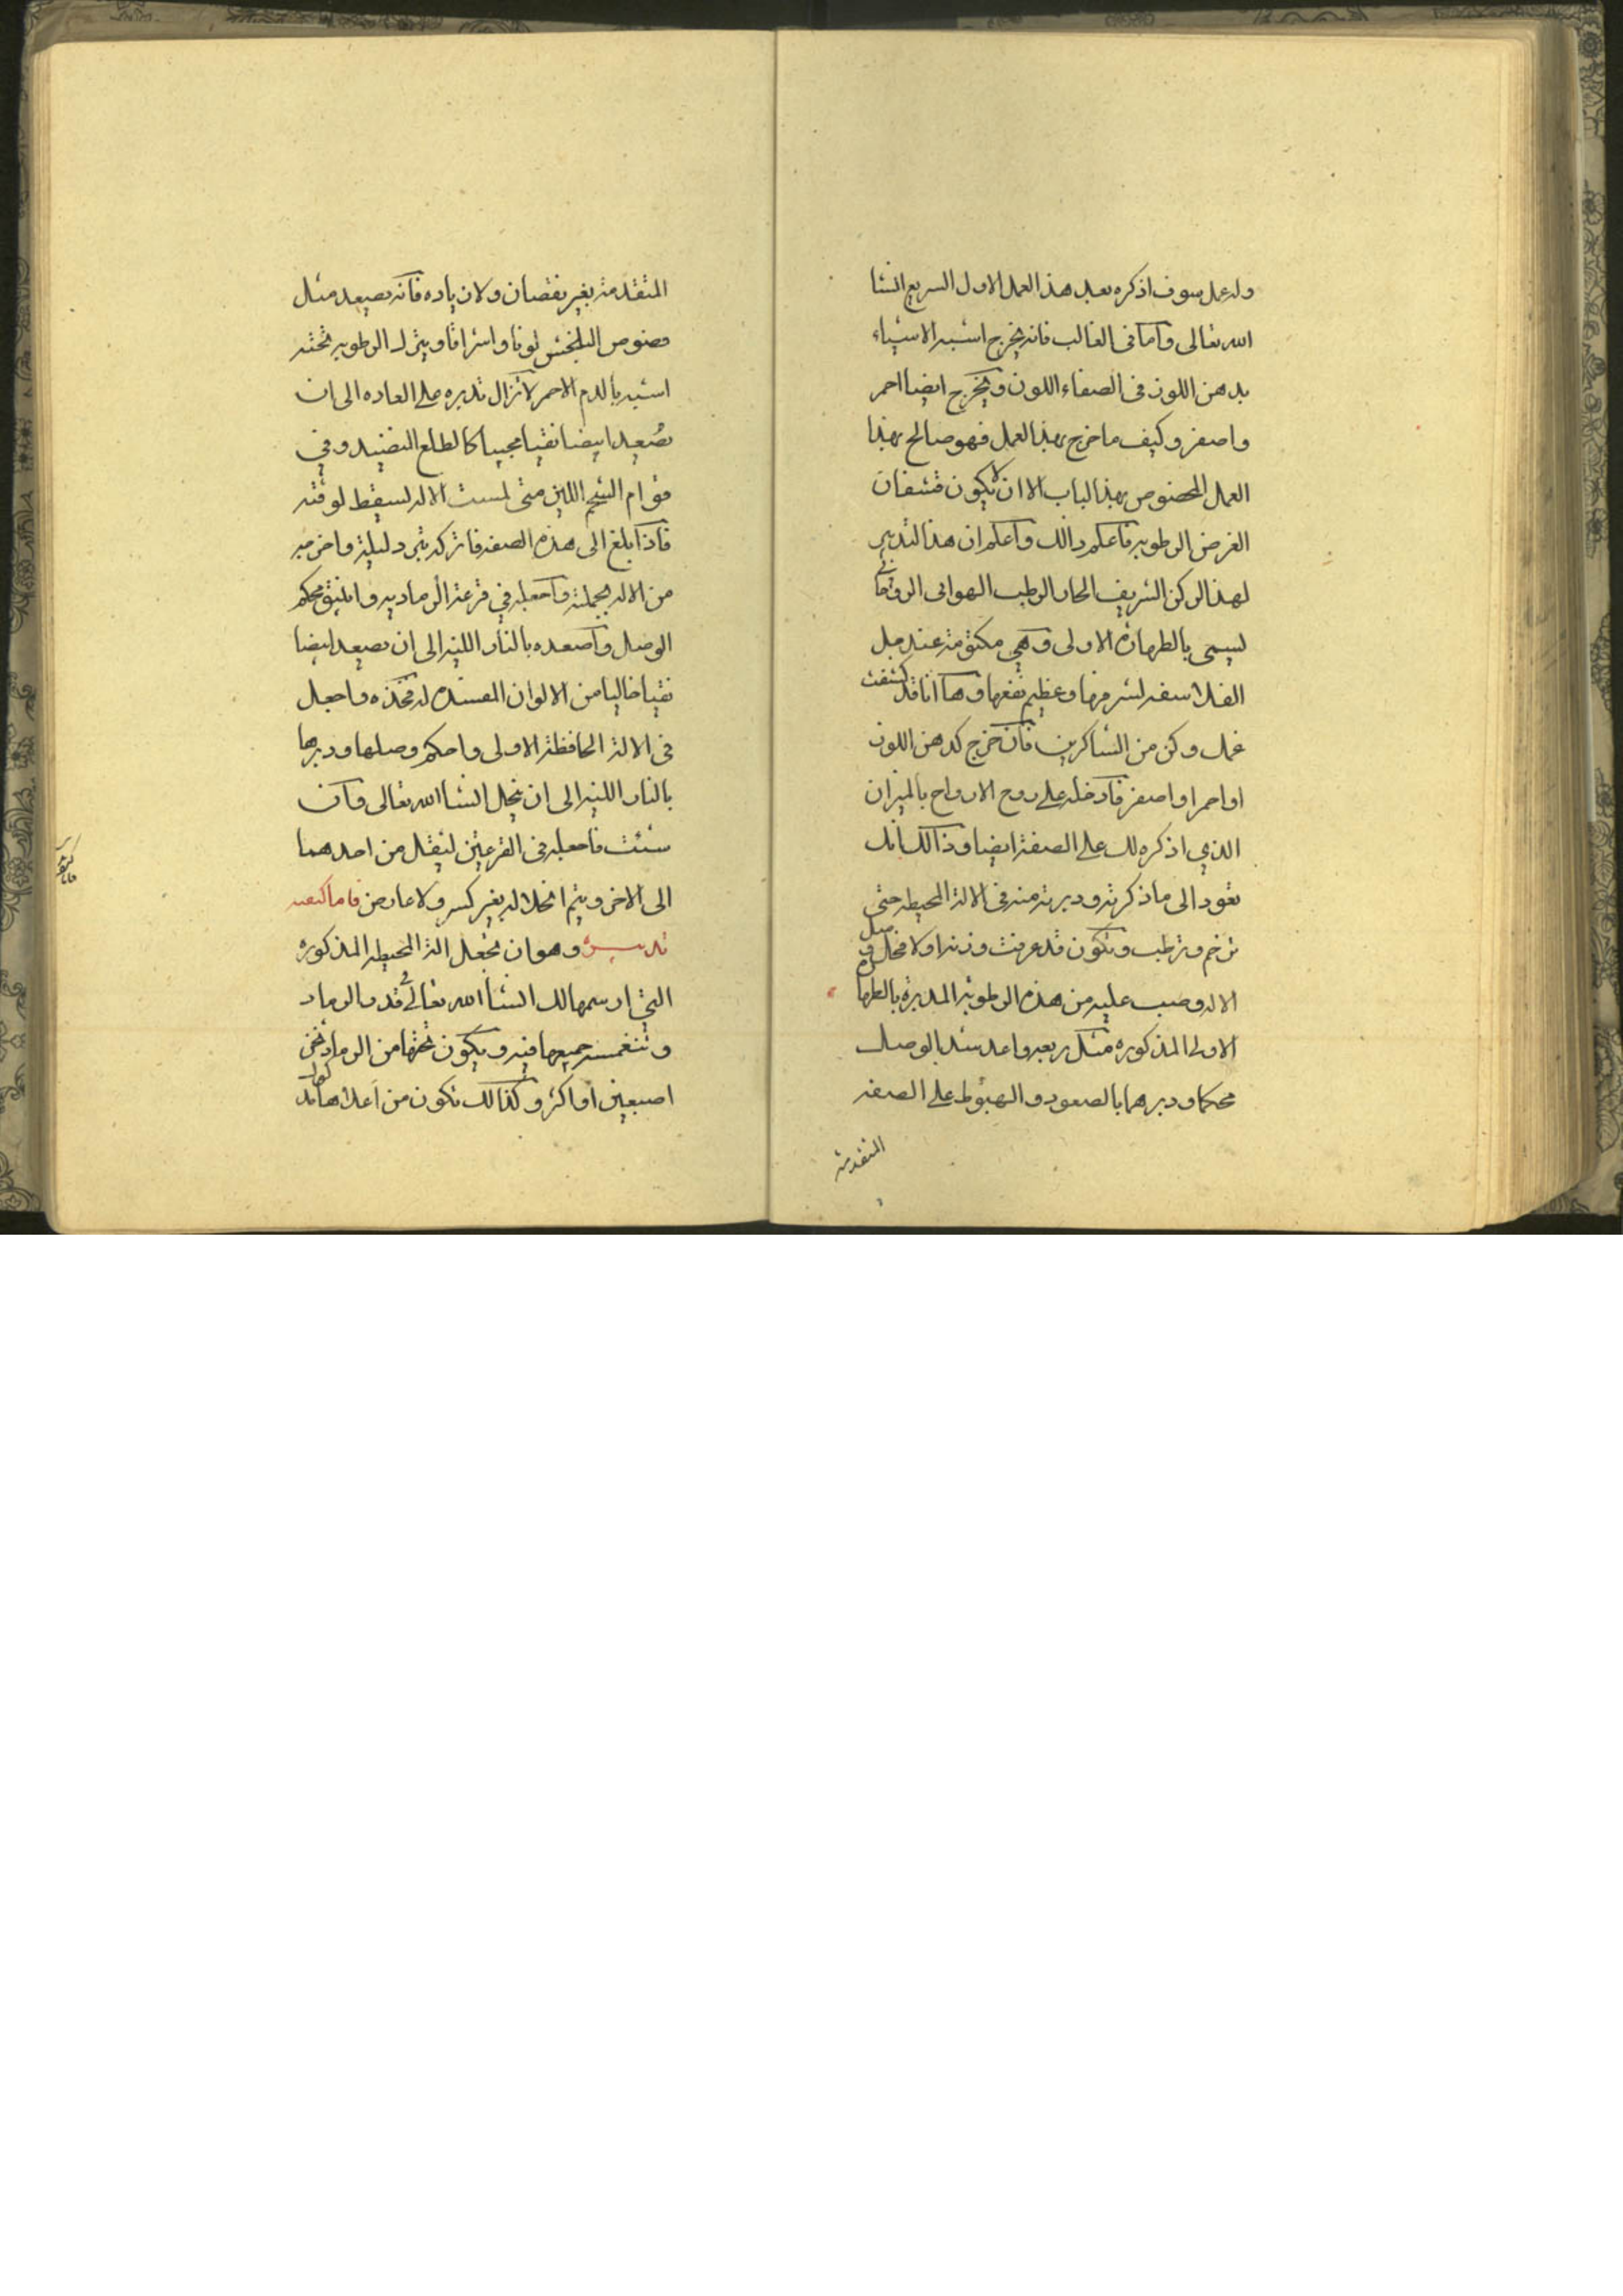 وله عمل سوف اذكره بعد هذا العمل الاول السريع انشا
الله تعالى واما فى الغالب فانه يخرج اشبه الاشياء
بدهن اللون فى الصفاء اللون ويخرج ايضا احمر
واصفر وكيف ما خرج بهذا العمل فهو صالح بهذا
العمل المخصوص بهذا الباب الا ان لا يكون قشفا فان
الغرض الرطوبه فاعلم ذالك واعلم ان هذا التدبير
لهذا الركن الشريف الحار الرطب الهوائى الروحانى
يسمى بالطهارة الاولى وهي مكتومة عند جل
الفلاسفه لشرفها وعظيم نفعها وها انا قد كشفت
عمل وكن من الشاكرين فان خرج كدهن اللون
او احمر او اصفر فادخله على روح الارواح بالميزان
الذي اذكره لك على الصفة ايضا وذالك انك
تعود الى ما ذكرته ودبرته منه فى الالة المحيطه حتى
ترخم وترطب وتكون قد عرفت وزنه اولا فى
الاله وصب عليه من هذه الرطوبة المدبرة بالطهارة
الاولى المذكوره مثل ربعه واعد شد الوصل
محكما ودبرهما بالصعود والهبوط على الصفه
المتقدمة
المتقدمة بغير نقصان ولا زياده فانه يصعد مثل
فصوص البلخش لونا واشراقا وينزل الرطوبه تحته
اشبه بالدم الاحمر لا تزال تدبره على العاده الى ان
تصعد ابيضا نقيا عجيبا كالطلع النضيد وفي
قوام الشحم اللين متى لمست الاله لسقط لوقته
فاذا بلغ الى هذه الصفه فاتركه يبرد ليلة واخرجه
من الاله بجملته واجعله في قرعة الرماديه وانبيق محكم
الوصل واصعده بالنار اللينه الى ان يصعد ابيضا
نقيا خاليا من الالوان المفسدة له فخذه واجعل
فى الالة الحافظة الاولى واحكم وصلها ودبرها
بالنار اللينه الى ان ينحل انشا الله تعالى وان
شئت فاجعله فى القرعتين لينقل من احدهما
الى الاخر ويتم انحلاله بغير كسر ولا عارض فاما كيفيه
تدبيره وهو ان تجعل الة المحيطه المذكوره
التي ارسمها لك انشا الله تعالى فى قدر بالرماد
وتنغمس جميعها فيه ويكون تحتها من الرماد ثخن
اصبعين او اكثر وكذالك تكون من اعلاها